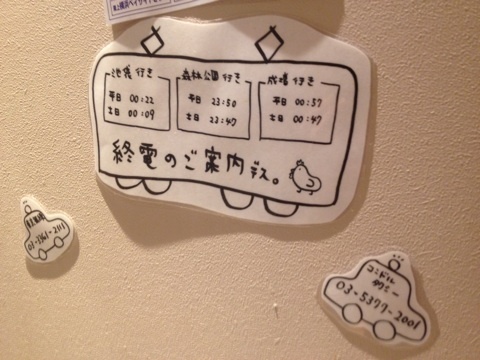 池袋 行き
平日 00:22
土日 00:09
森林公園 行き
平日 23:50
土日 23:47
成増 行き
平日 00:57
土日 00:47
終電のご案内デス。
コンドル
タクシー
03-5377-2001